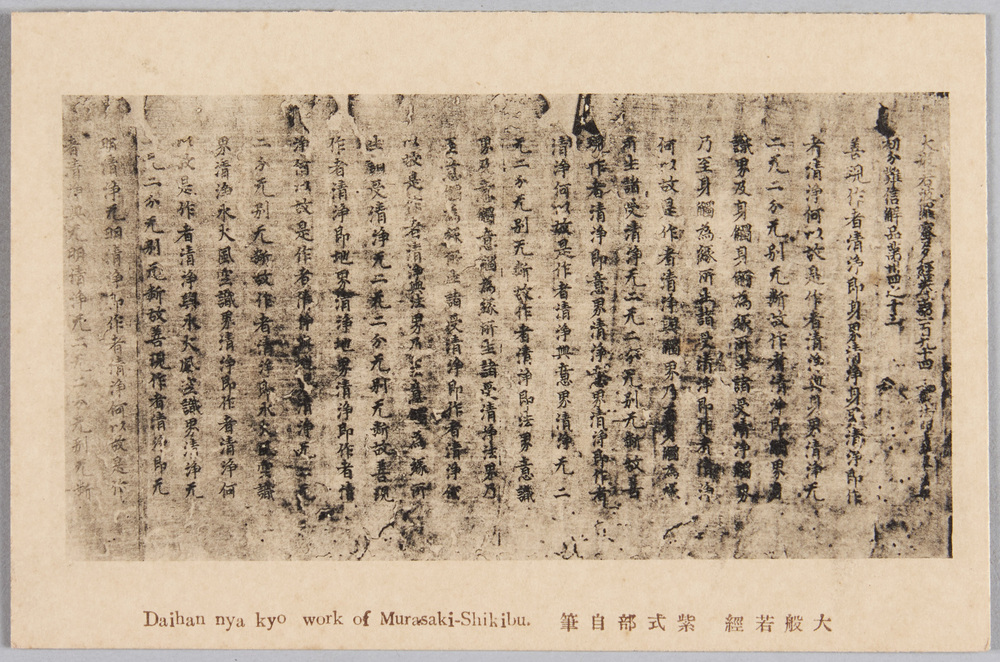 大般若波羅蜜多經卷第一百九十四
初分難信解品第卅四之十三
善現作者清淨即身界清淨身界清淨即作
者清淨何以故是作者清淨與身界清淨无
二无二分无別无斷故作者清淨即觸界身
識界及身觸身觸為緣所生諸受清淨觸界
乃至身觸為緣所生諸受清淨即作者清淨
何以故是作者清淨與觸界乃至身觸為緣
所生諸受清淨无二无二分无別无斷故善
現作者清淨即意界清淨意界清淨即作者
清淨何以故是作者清淨與意界清淨无二
无二分无別无斷故作者清淨即法界意識
界及意觸意觸為緣所生諸受清淨法界乃
至意觸為緣所生諸受清淨即作者清淨何
以故是作者清淨與法界乃至意觸為緣所
生諸受清淨无二无二分无別无斷故善現
作者清淨即地界清淨地界清淨即作者清
淨何以故是作者清淨與地界清淨无二无
二分无別无斷故作者清淨即水火風空識
界清淨水火風空識界清淨即作者清淨何
以故是作者清淨與水火風空識界清淨无
二无二分无別无斷故善現作者清淨即无
明清淨无明清淨即作者清淨何以故是作
者清淨與无明清淨无二无二分无別无斷
Daihan nya kyo work of Murasaki-Shikibu.
大般若經 紫式部自筆